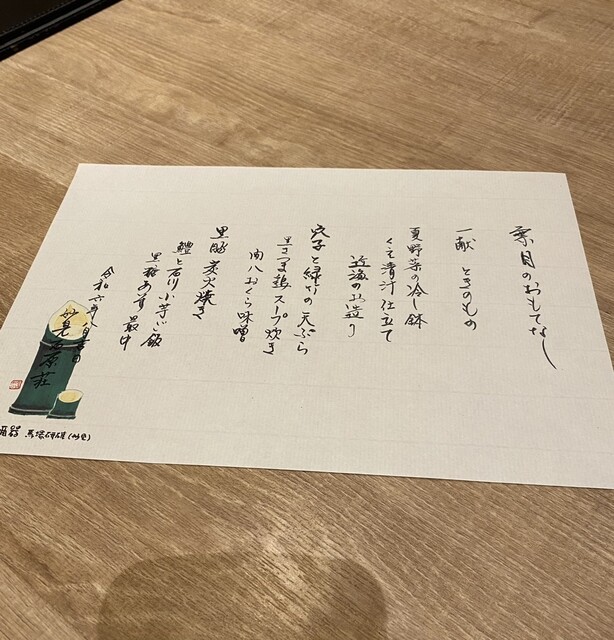 葉月のおもてなし
一献 ときのもの
夏野菜の冷し鉢
くえ清汁仕立て
近海のお造り
穴子と緑竹の天ぷら
黒さつま鶏スープ炊き
間八おくら味噌
黒豚 炭火焼き
鱧と石川小芋ご飯
黒糖あずき最中
令和六年八月
妙見石原荘